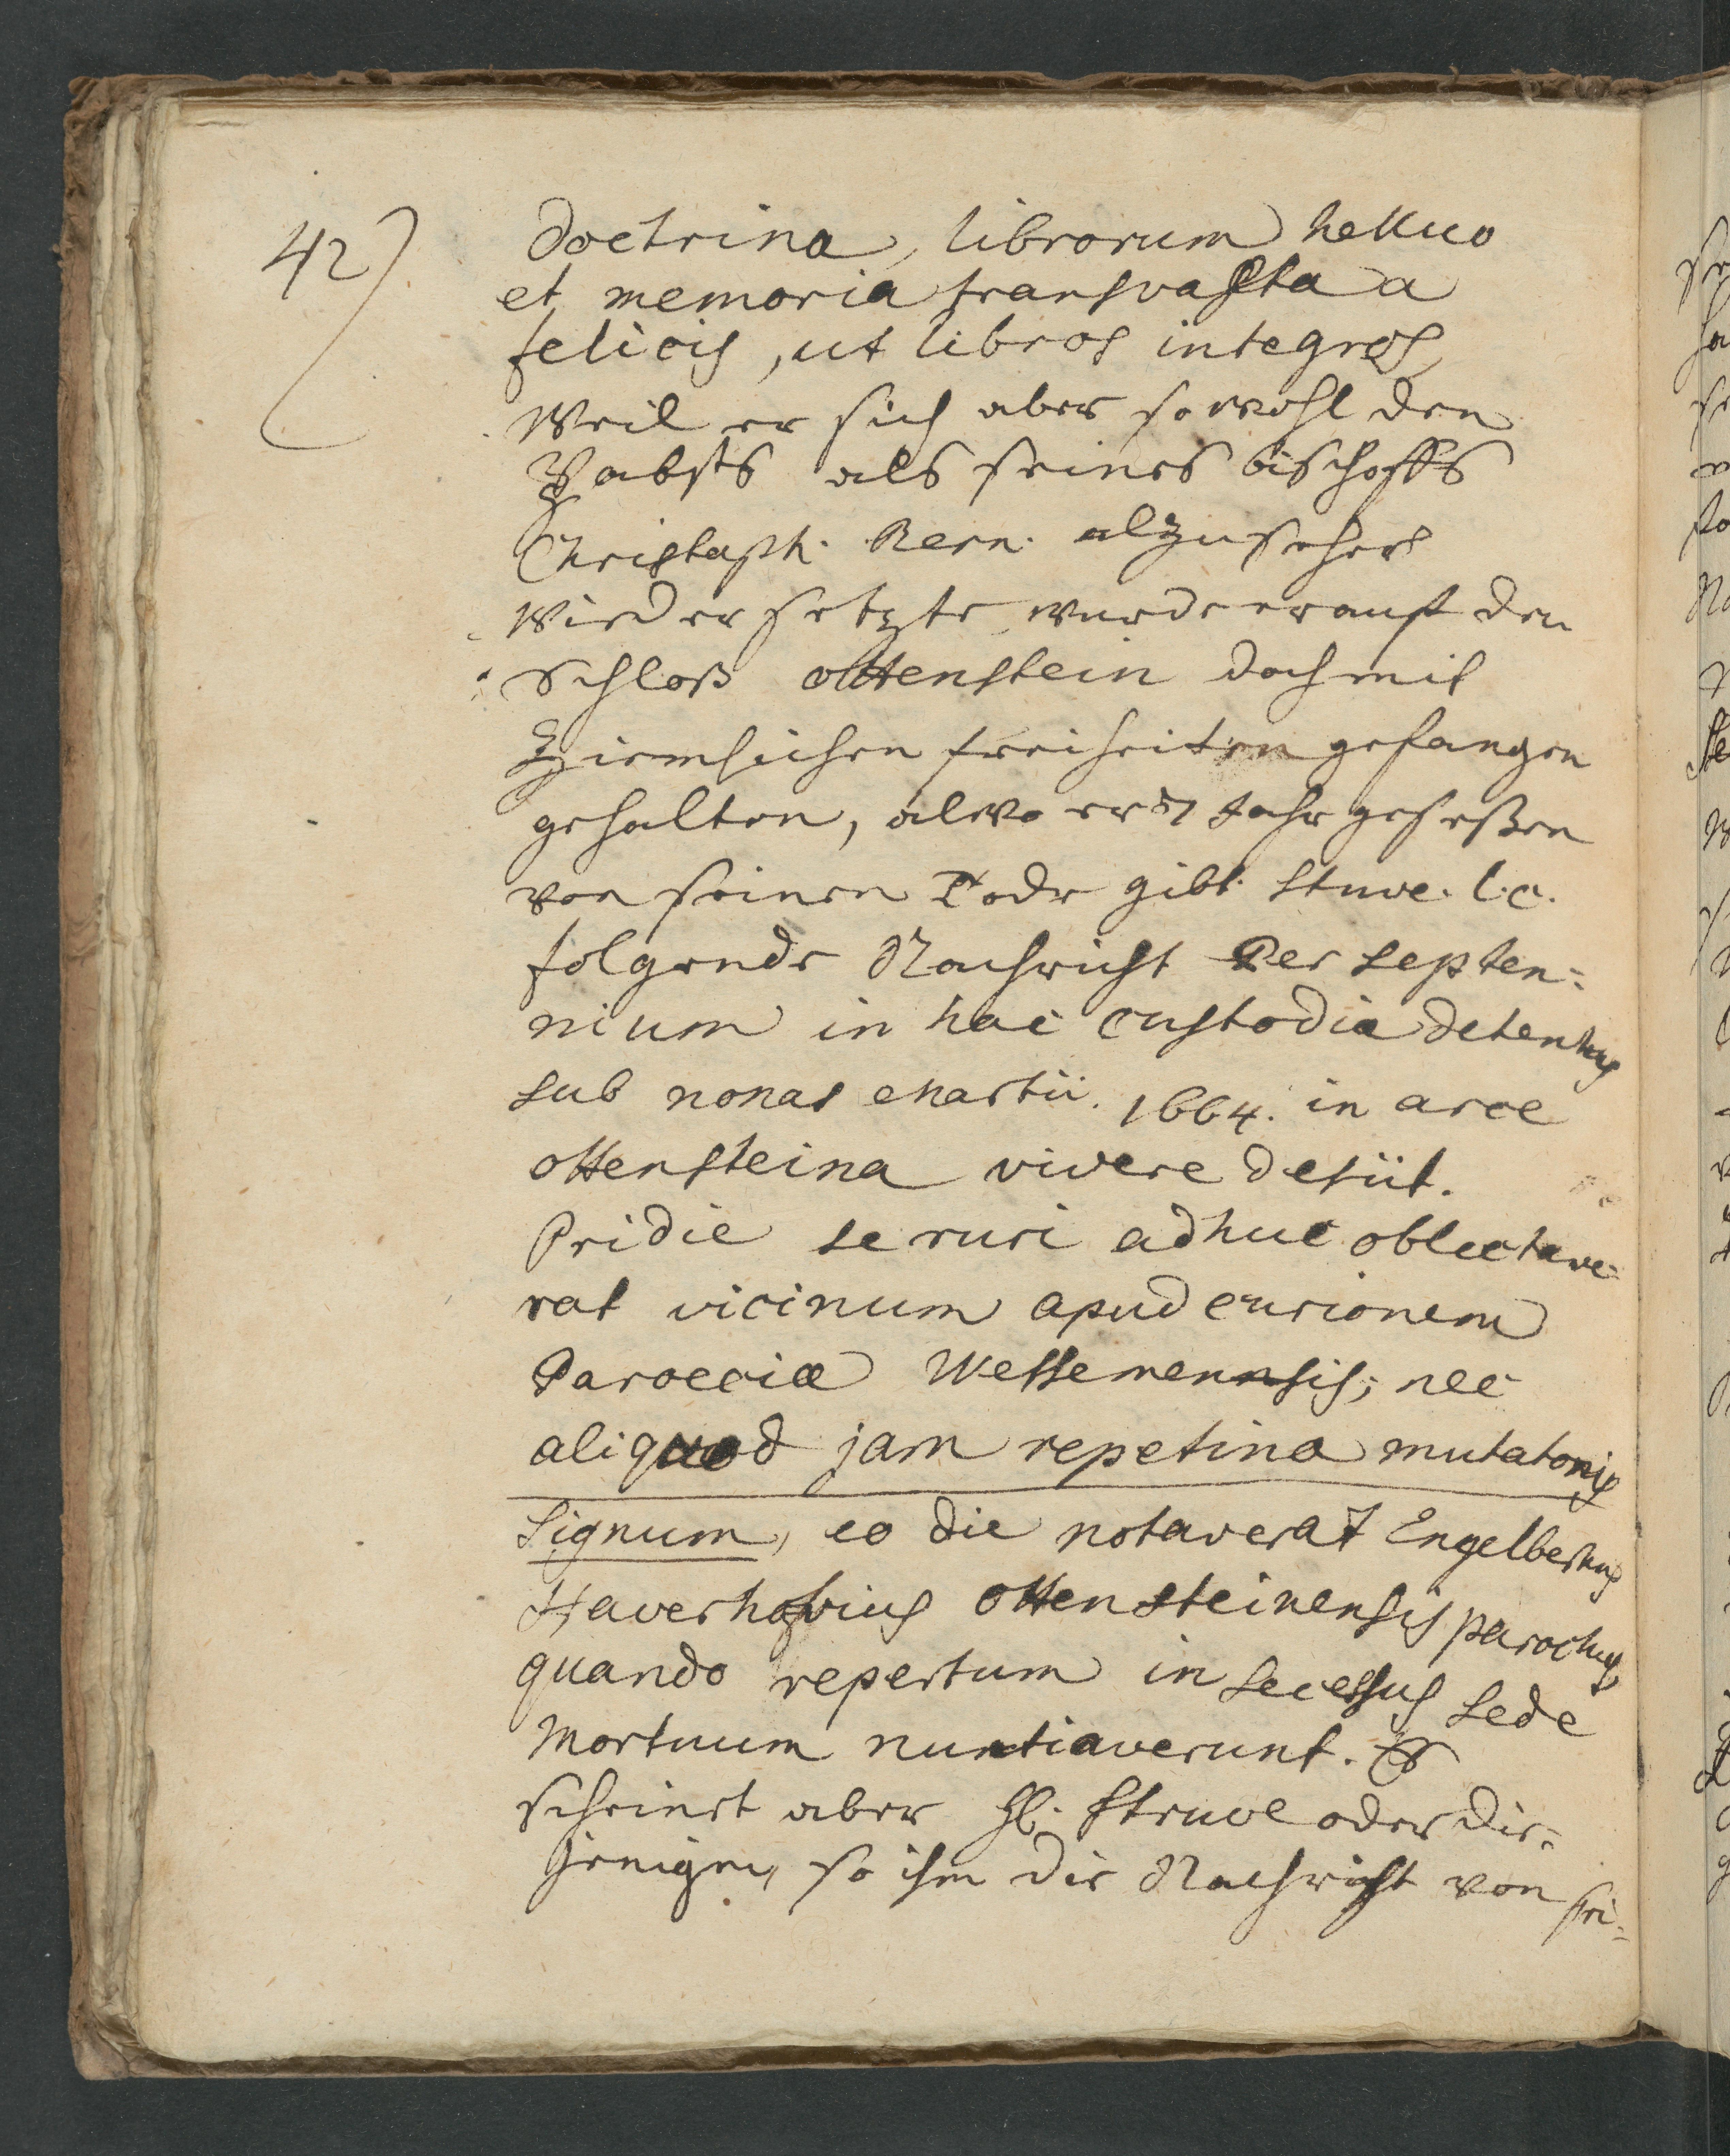 42)
doctrina, librorum helluo
et memoria transvasta a
felicis, ut libros integros,
Weil er sich aber sowohl den
Pabsts als seines bischoffs
Christoph. Bern. alzusehr
Wiedersetzte, wurde er auf den
Schloß ottenstein doch mit
Ziemlichen freiheiten gefangen
gehalten, alwo er 7 Jahr geseßen
von seinen Tode gibt Stuve. l.c.
folgende Nachricht Per septen=
nium in hac custodia detentus
sub nonas Martii. 1664. in arce
ottensteina vivere desiit.
Pridie se ruri adhuc oblectave=
rat vicinum apud curionem
Paroeciæ Wessemensis; nec
aliquod jam repetina mutatonis
Signum, eo die notaverat Engelbertus
Haverhovius ottensteinensis parochus,
quando repertum in secessus sede
Mortuum nuntiaverunt. Es
scheint aber H. Struve oder die=
jenigen, so ihm die Nachricht von sei=